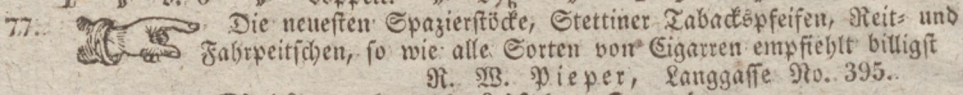 77. Die neuesten Spazierstöcke, Stettiner Tabackspfeifen, Reit- und
Fahrpeitschen, so wie alle Sorten von Cigarren empfiehlt billigst
R. W. Pieper, Langgasse No. 395.